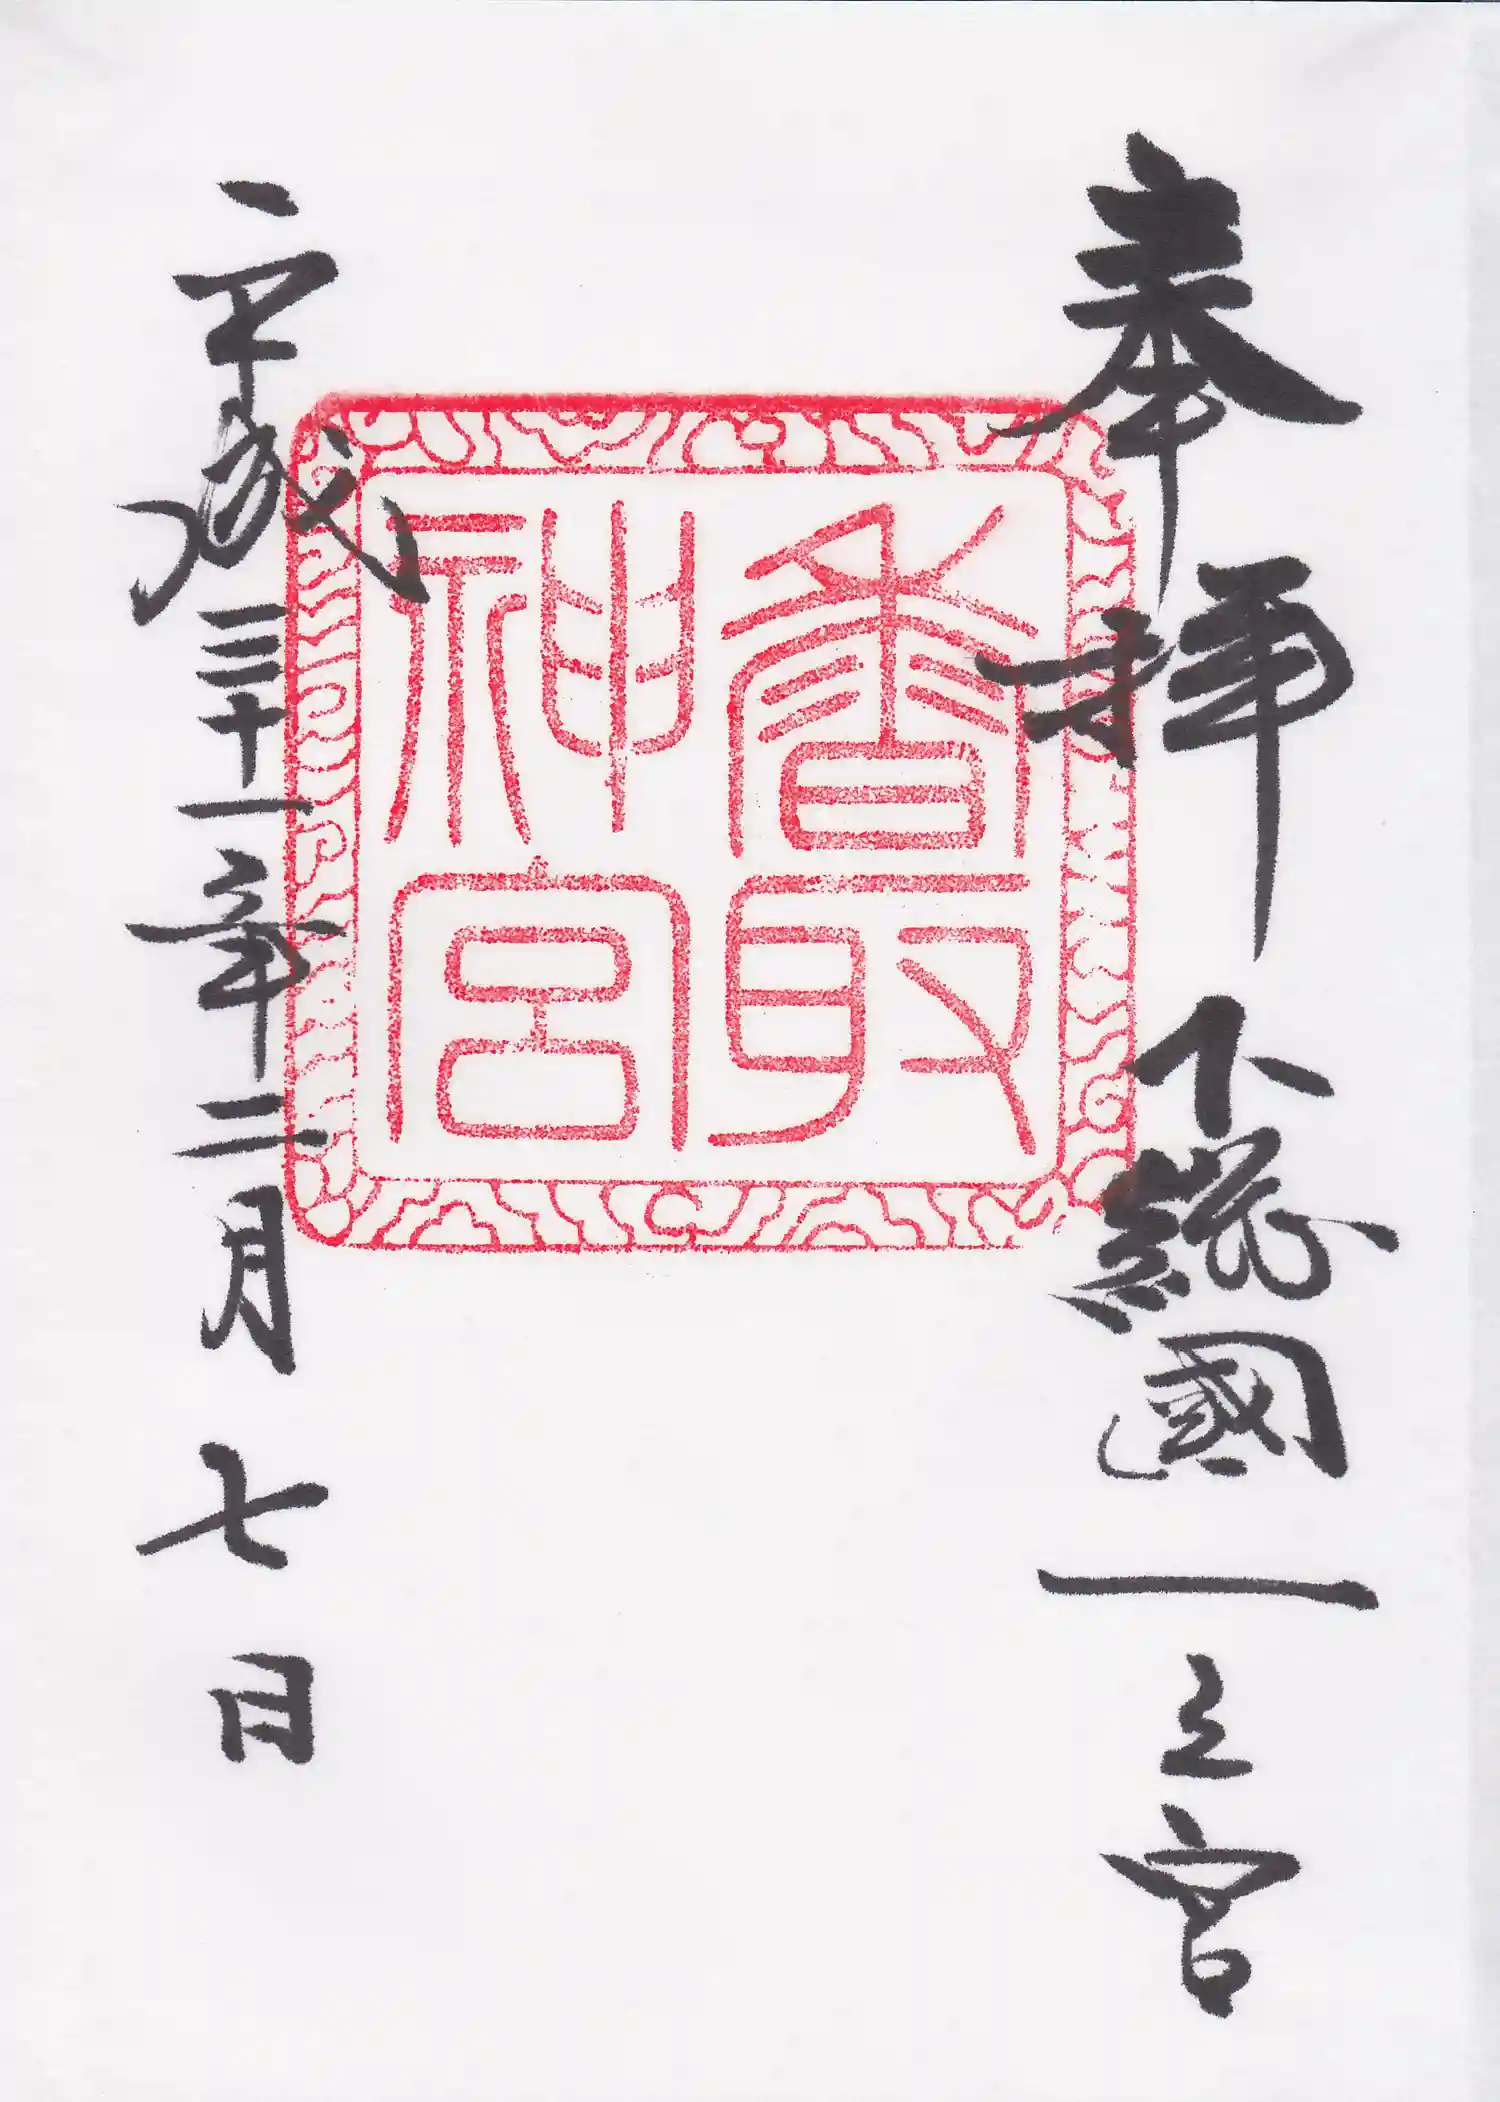 奉拝 下總國一之宮
香取
神宮
平成三十一年二月七日